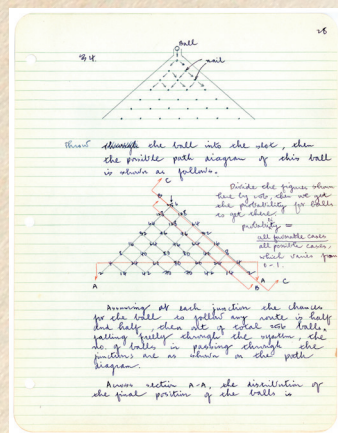 28
Ball
nail
Throw through the ball into the slot, then
the possible path diagram of this ball
is shown as follows.
C
Divide the figures shown
here by 256, then we get
the probability for balls
to get there.
probability =
all favorable cases
all possible cases,
which varies from
0-1.
A
A
B
C
Assuming at each junction the chances
for the ball to follow any route is half
and half, then out of total 256 balls
falling freely through the system, the
no. of balls in passing through the
junctions are as shown on the path
diagram.
Across section A-A, the distribution of
the final position of the balls is